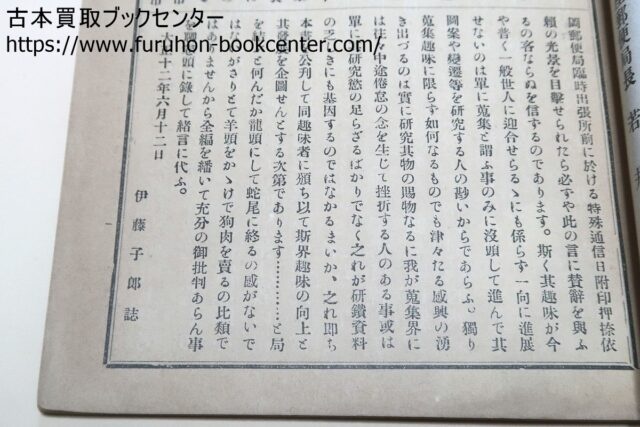 古本買取ブックセンター
https://www.furuhon-bookcenter.com/
岡郵便局臨時出張所前に於ける特殊通信日附印押捺依
賴の光景を目擊せられたら必ずや此の言に賛辭を與ふ
るの客ならぬを信ずるのであります。斯く其趣味が今
や普く一般世人に迎合せらるゝにも係らず一向に進展
せないのは單に蒐集と謂ふ事のみに沒頭して進んで其
圖案や變遷等を硏究する人の尠いからであらふ。獨り
蒐集趣味に限らず如何なるものでも津々たる感興の湧
き出づるのは實に硏究其物の賜物なるに我が蒐集界に
は往々中途倦怠の念を生じて挫折する人のある事或は
單に硏究慾の足らざるばかりでなく之れが硏鑽資料
の乏しきにも基因するのではなかるまいか、之れ卽ち
本書を公刊して同趣味者に頒ち以て斯界趣味の向上と
其發展を企圖せんとする次第であります…………と局
を結ぶと何んだか龍頭にして蛇尾に終るの感がないで
はないがさりとて羊頭をかゝげて狗肉を賣るの比類で
はありませんから全編を繙いて充分の御批判あらん事
を頭に錄して緖言に代ふ。
大正十二年六月十二日
伊藤子郎誌